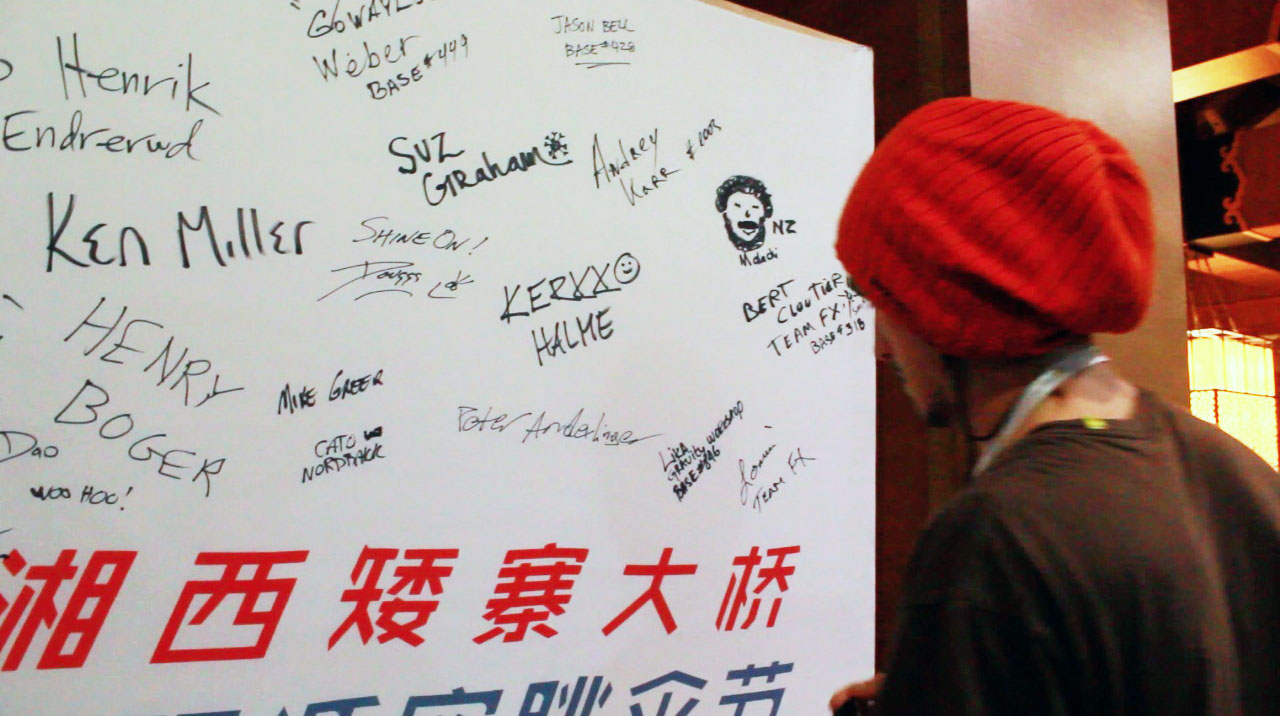 Henrik
Endrerud
Weber
BASE#449
JASON BELL
BASE#428
SUZ
GRaham
Andrey
Karr #1003
Ken Miller
SHINE ON!
NZ
KERXX
HALME
BERT
CLOUTIER
TEAM FX
BASE#318
HENRY
BOGER
MIKE GREER
CATO
Dao
WOO HOO!
Peter
LIKA
GRAVITY WORKSHOP
BASE#846
TEAM FX
湘西矮寨大桥
跳伞节